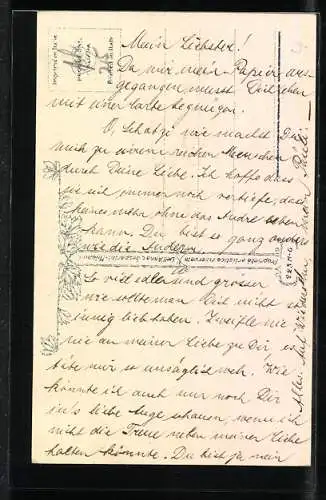 Imprimé en Italie
Mein Liebster!
Da mir mein Papier aus-
gegangen musst Dich eben
mit einer Karte begnügen.
O, Schatzi wie machst Du
mich zu einem reichen Menschen
durch Deine Liebe. Ich hoffe dass
sie sich immer noch vertiefe, dass
keines mehr ohne das Andre leben
kann. Du bist so ganz anders
wie die Andern.
So viel edler und grösser
wie sollte man Dich nicht so
innig lieb haben. Zweifle nie
nie an meiner Liebe zu Dir, es
täte mir so unsäglich weh. Wie
könnte ich auch nur noch Dir
in's liebe Auge schauen, wenn ich
nicht die Treue neben meiner Liebe
halten könnte. Du bist ja mein
Alles. Auf Wiedersehen,
Proprietà artistica riservata